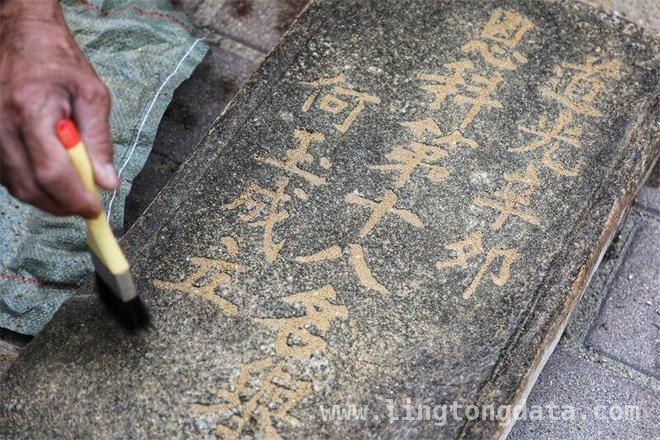 道光辛卯
恩科第十八名
何玉成立
www.lingtongdata.com.cn